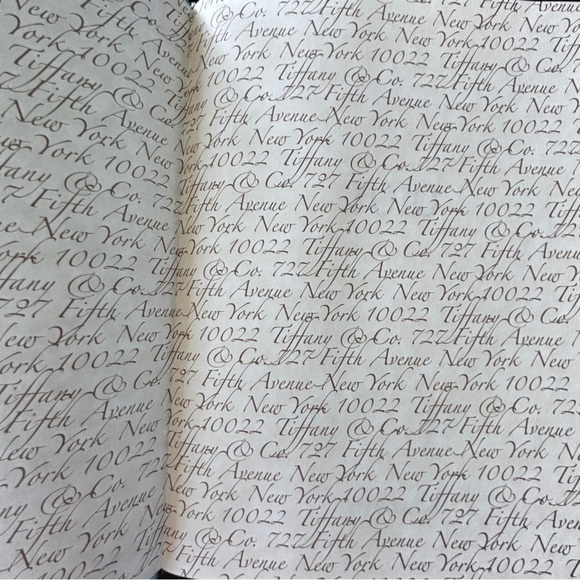 New York New
York 10022
Tiffany & Co.
727 Fifth Avenue
New York New
York 10022
Tiffany & Co. 727
Fifth Avenue
New York New
York 10022
Tiffany & Co.
727 Fifth Avenue
New York New
York 10022
Tiffany & Co.
Fifth Avenue
New York
York 10022
Tiffany & Co. 727
Fifth Avenue
New York New
& Co. 727 Fifth Avenue New York
Fifth Avenue New York New York 10022
New York 10022 Tiffany & Co. 727
Tiffany & Co. 727 Fifth Avenue New
Fifth Avenue New York New York 10022
New York New York 10022 Tiffany & Co. 727
York 10022 Tiffany & Co. 727 Fifth Avenue
Tiffany & Co. 727 Fifth Avenue New York
Fifth Avenue New York New York 10022
New York New York 10022 Tiffany
New York 10022 Tiffany & Co. 727 Fifth Avenue
Tiffany & Co. 727 Fifth Avenue New York
Fifth Avenue New York New York 10022
New York New York 10022 Tiffany & Co.
New York 10022 Tiffany & Co. 727 Fifth Avenue
Tiffany & Co. 727 Fifth Avenue New York
727 Fifth Avenue New York New York 10022
New York New York 10022 Tiffany & Co. 727
New York 10022 Tiffany & Co. 727 Fifth Avenue
Tiffany & Co. 727 Fifth Avenue New York
Fifth Avenue New York New York 10022
New York New York 10022 Tiffany & Co.
New York 10022 Tiffany & Co. 727 Fifth
Tiffany & Co. 727 Fifth Avenue New York
Fifth Avenue New York New York 10022